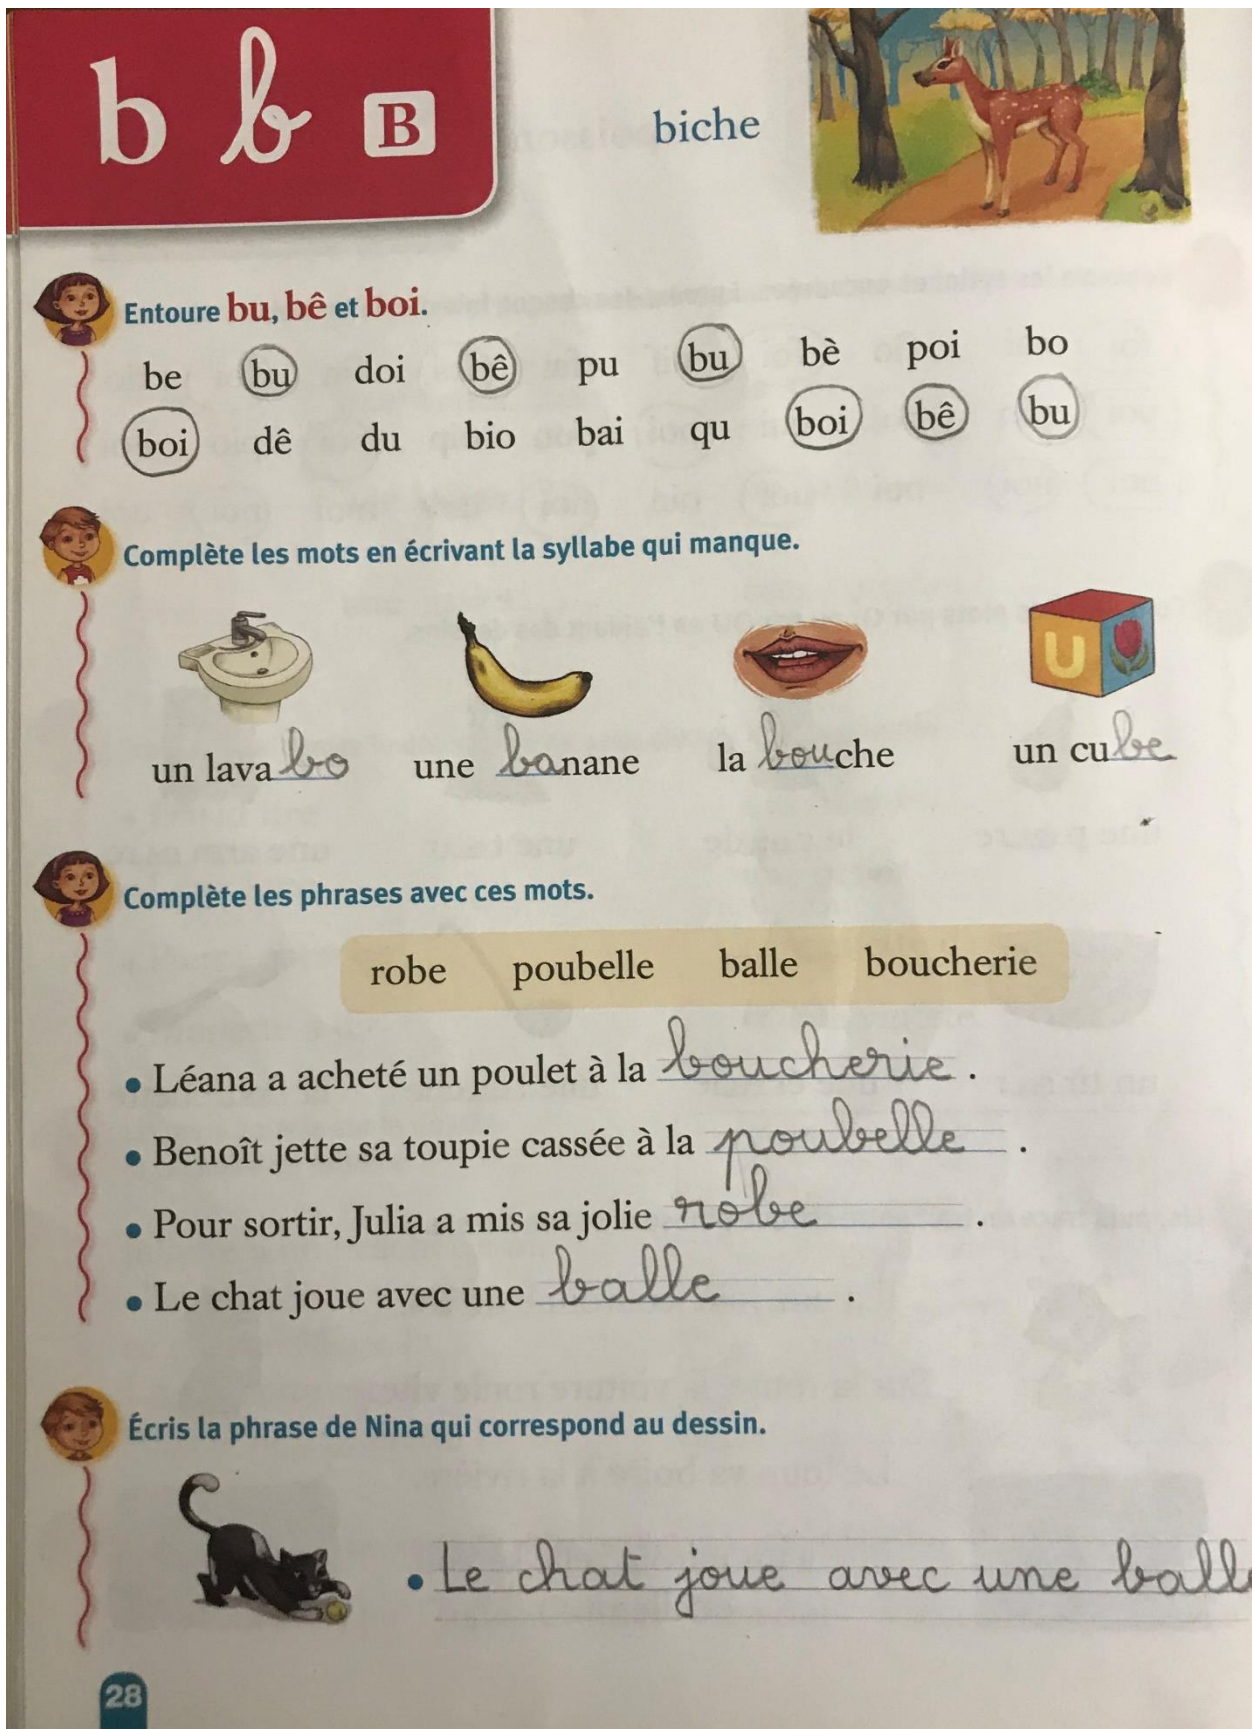 b b B
biche
Entoure bu, bê et boi.
be bu doi bê pu bu bè poi bo
boi dê du bio bai qu boi bê bu
Complète les mots en écrivant la syllabe qui manque.
U
un lavabo une banane la bouche un cube
Complète les phrases avec ces mots.
robe poubelle balle boucherie
• Léana a acheté un poulet à la boucherie.
• Benoît jette sa toupie cassée à la poubelle.
• Pour sortir, Julia a mis sa jolie robe.
• Le chat joue avec une balle.
Écris la phrase de Nina qui correspond au dessin.
• Le chat joue avec une ball
28